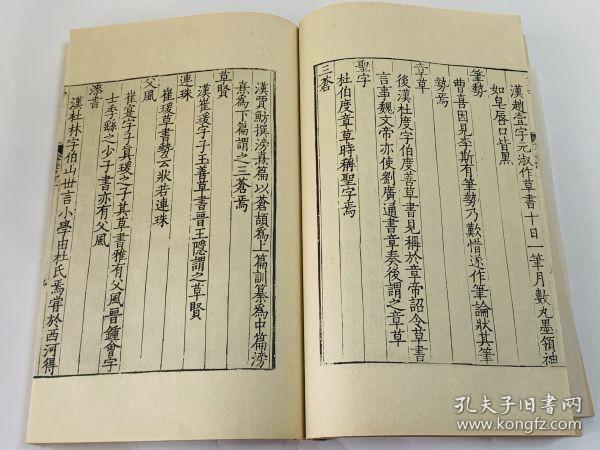 漢趙壹字元淑作草書十日一筆月數丸墨領袖
如皂唇口皆黑
筆勢
曹喜因見李斯有筆勢乃歎惜遂作筆論狀其筆
勢焉
章草
後漢杜度字伯度善草書見稱於章帝詔令草書
言事魏文帝亦使劉廣通書章奏後謂之章草
聖字
杜伯度章草時稱聖字焉
三蒼
漢賈魴撰滂熹篇以蒼頡為上篇訓纂為中篇滂
熹為下篇謂之三蒼焉
草賢
漢崔瑗字子玉善草書晉王隱謂之草賢
連珠
崔瑗草書勢云狀若連珠
父風
崔寔字子真瑗之子其草書雅有父風晉鍾會字
士季繇之少子書亦有父風
漆書
漢杜林字伯山世言小學由杜氏焉嘗於西河得
孔夫子旧书网
www.kongfz.com